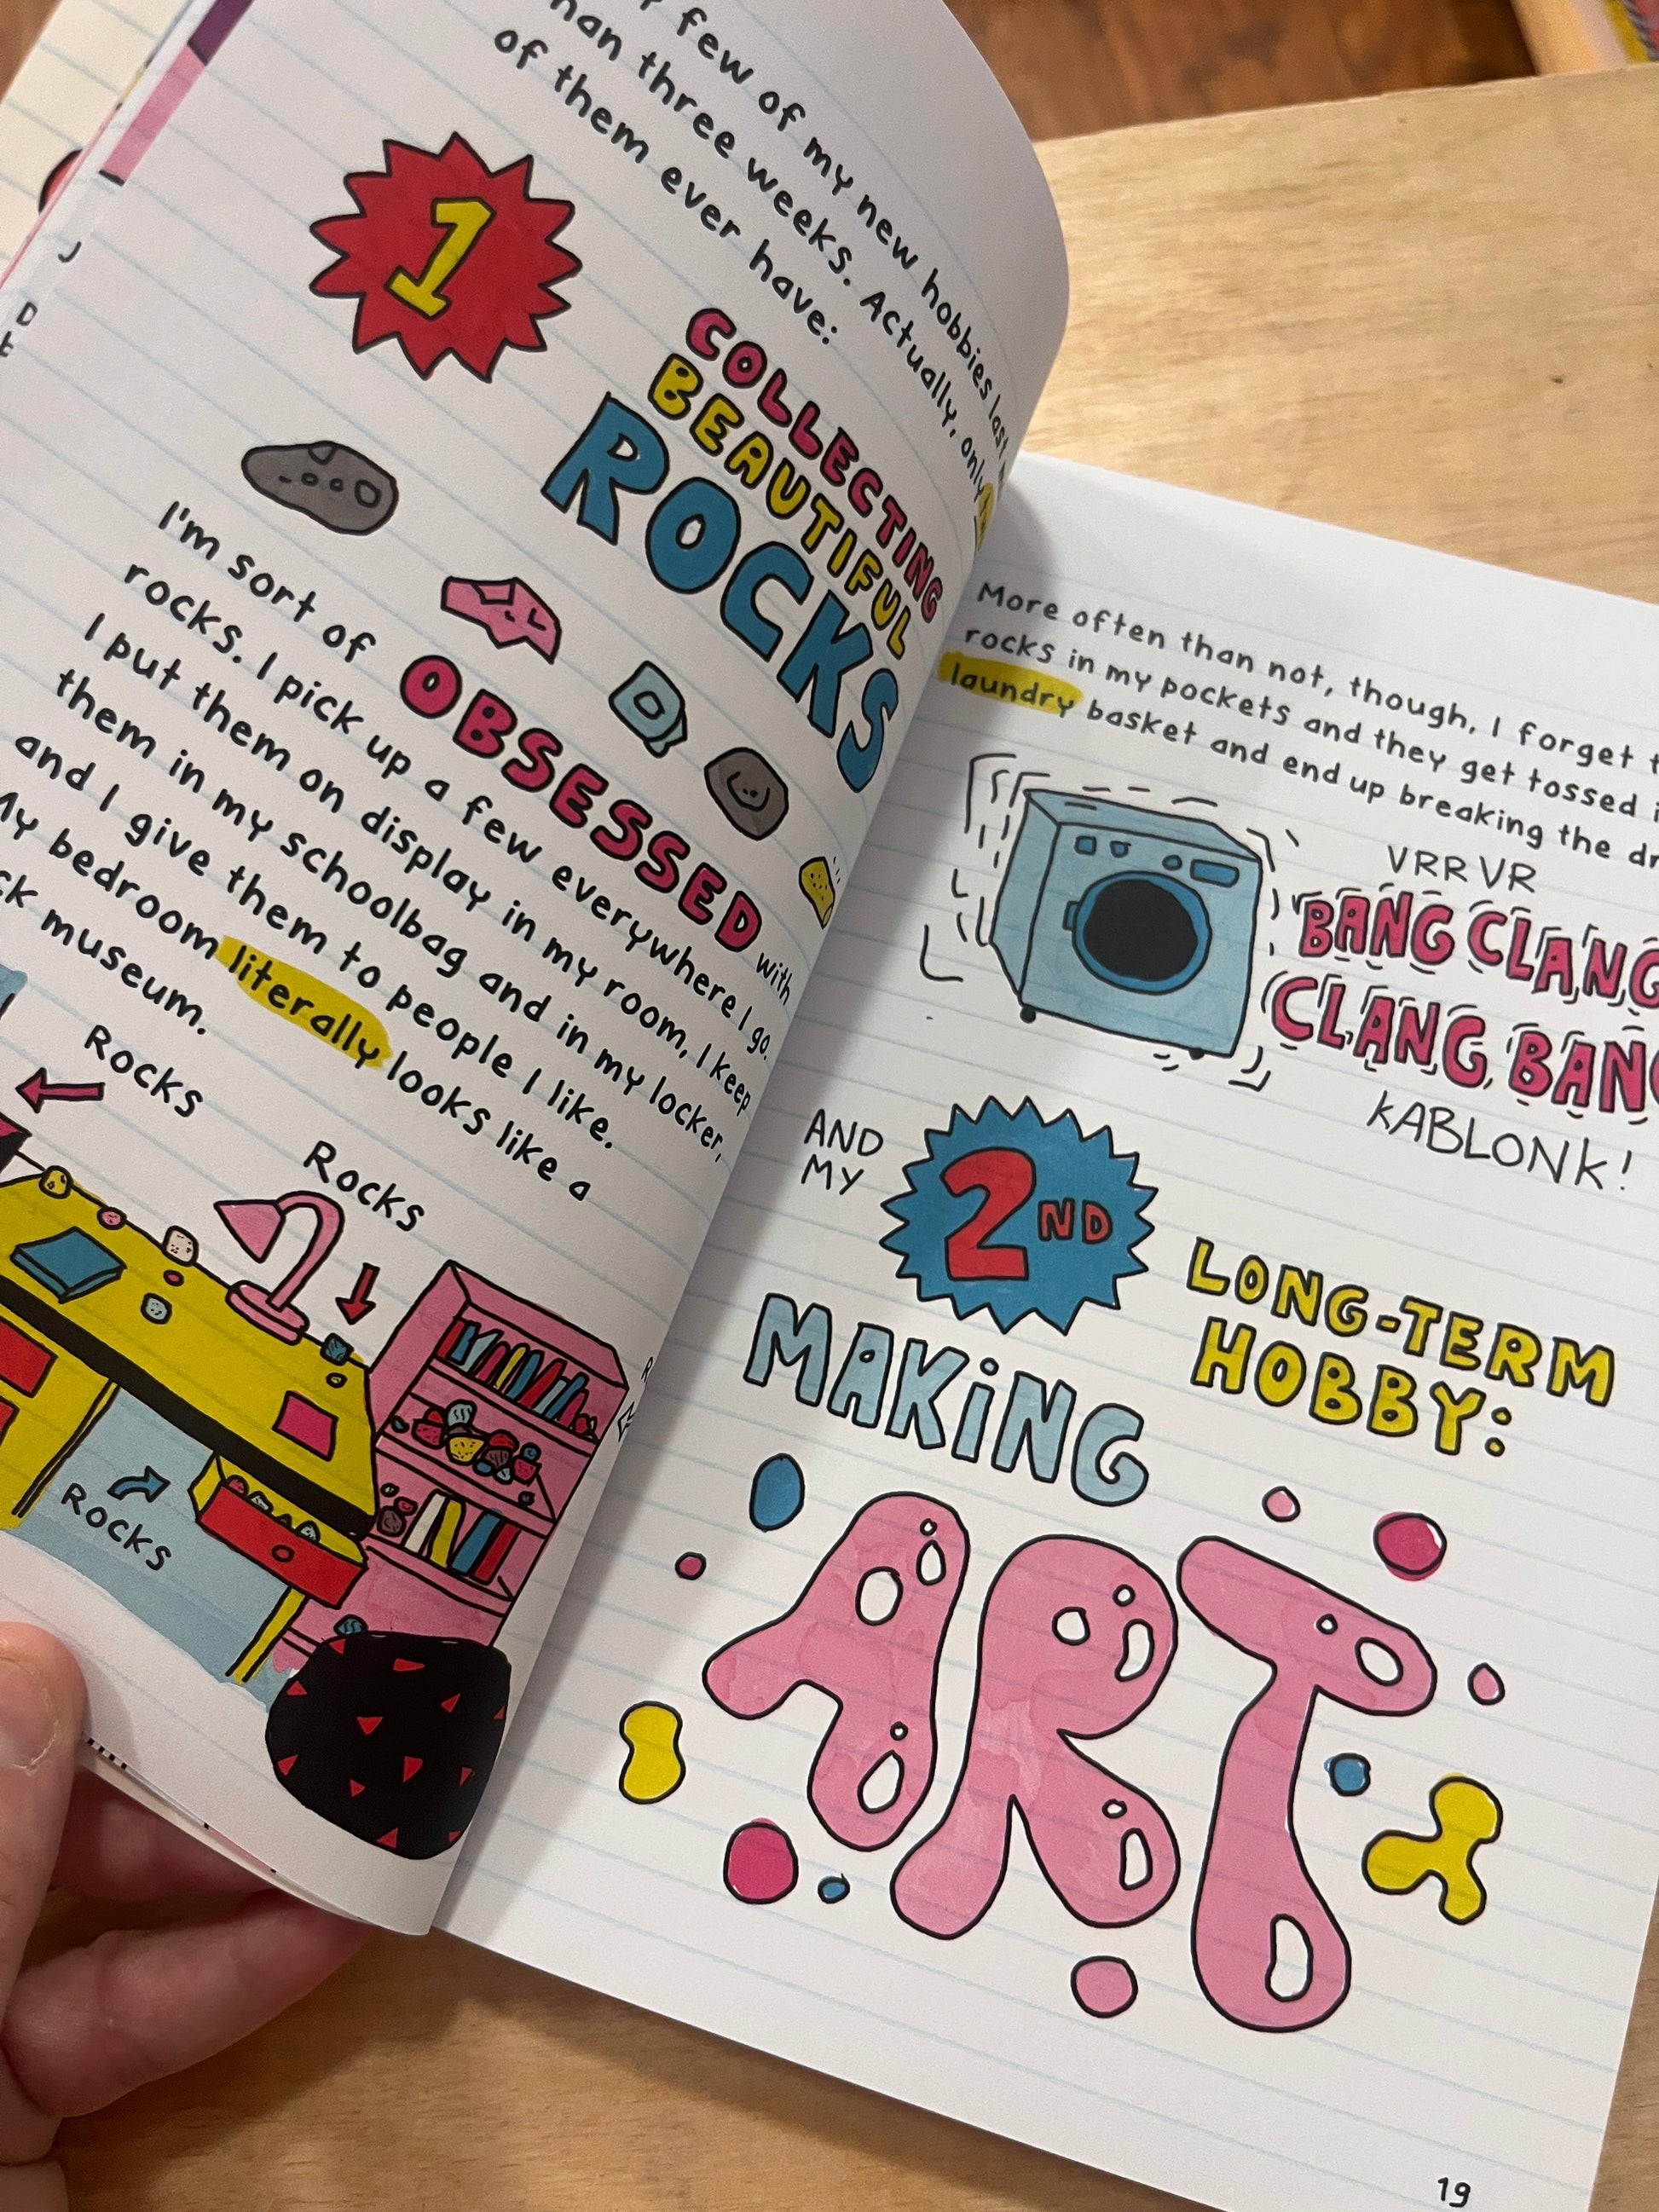 few of my new hobbies last
than three weeks. Actually, only
of them ever have:
1
COLLECTING
BEAUTIFUL
ROCKS
I'm sort of OBSESSED with
rocks. I pick up a few everywhere I go.
I put them on display in my room, I keep
them in my schoolbag and in my locker,
and I give them to people I like.
My bedroom literally looks like a
museum.
Rocks
Rocks
Rocks
More often than not, though, I forget
rocks in my pockets and they get tossed
laundry basket and end up breaking the
VRRVR
BANG CLANG
CLANG BANG
KABLONK!
AND
MY
2ND
LONG-TERM
HOBBY:
MAKiNG
ART
19